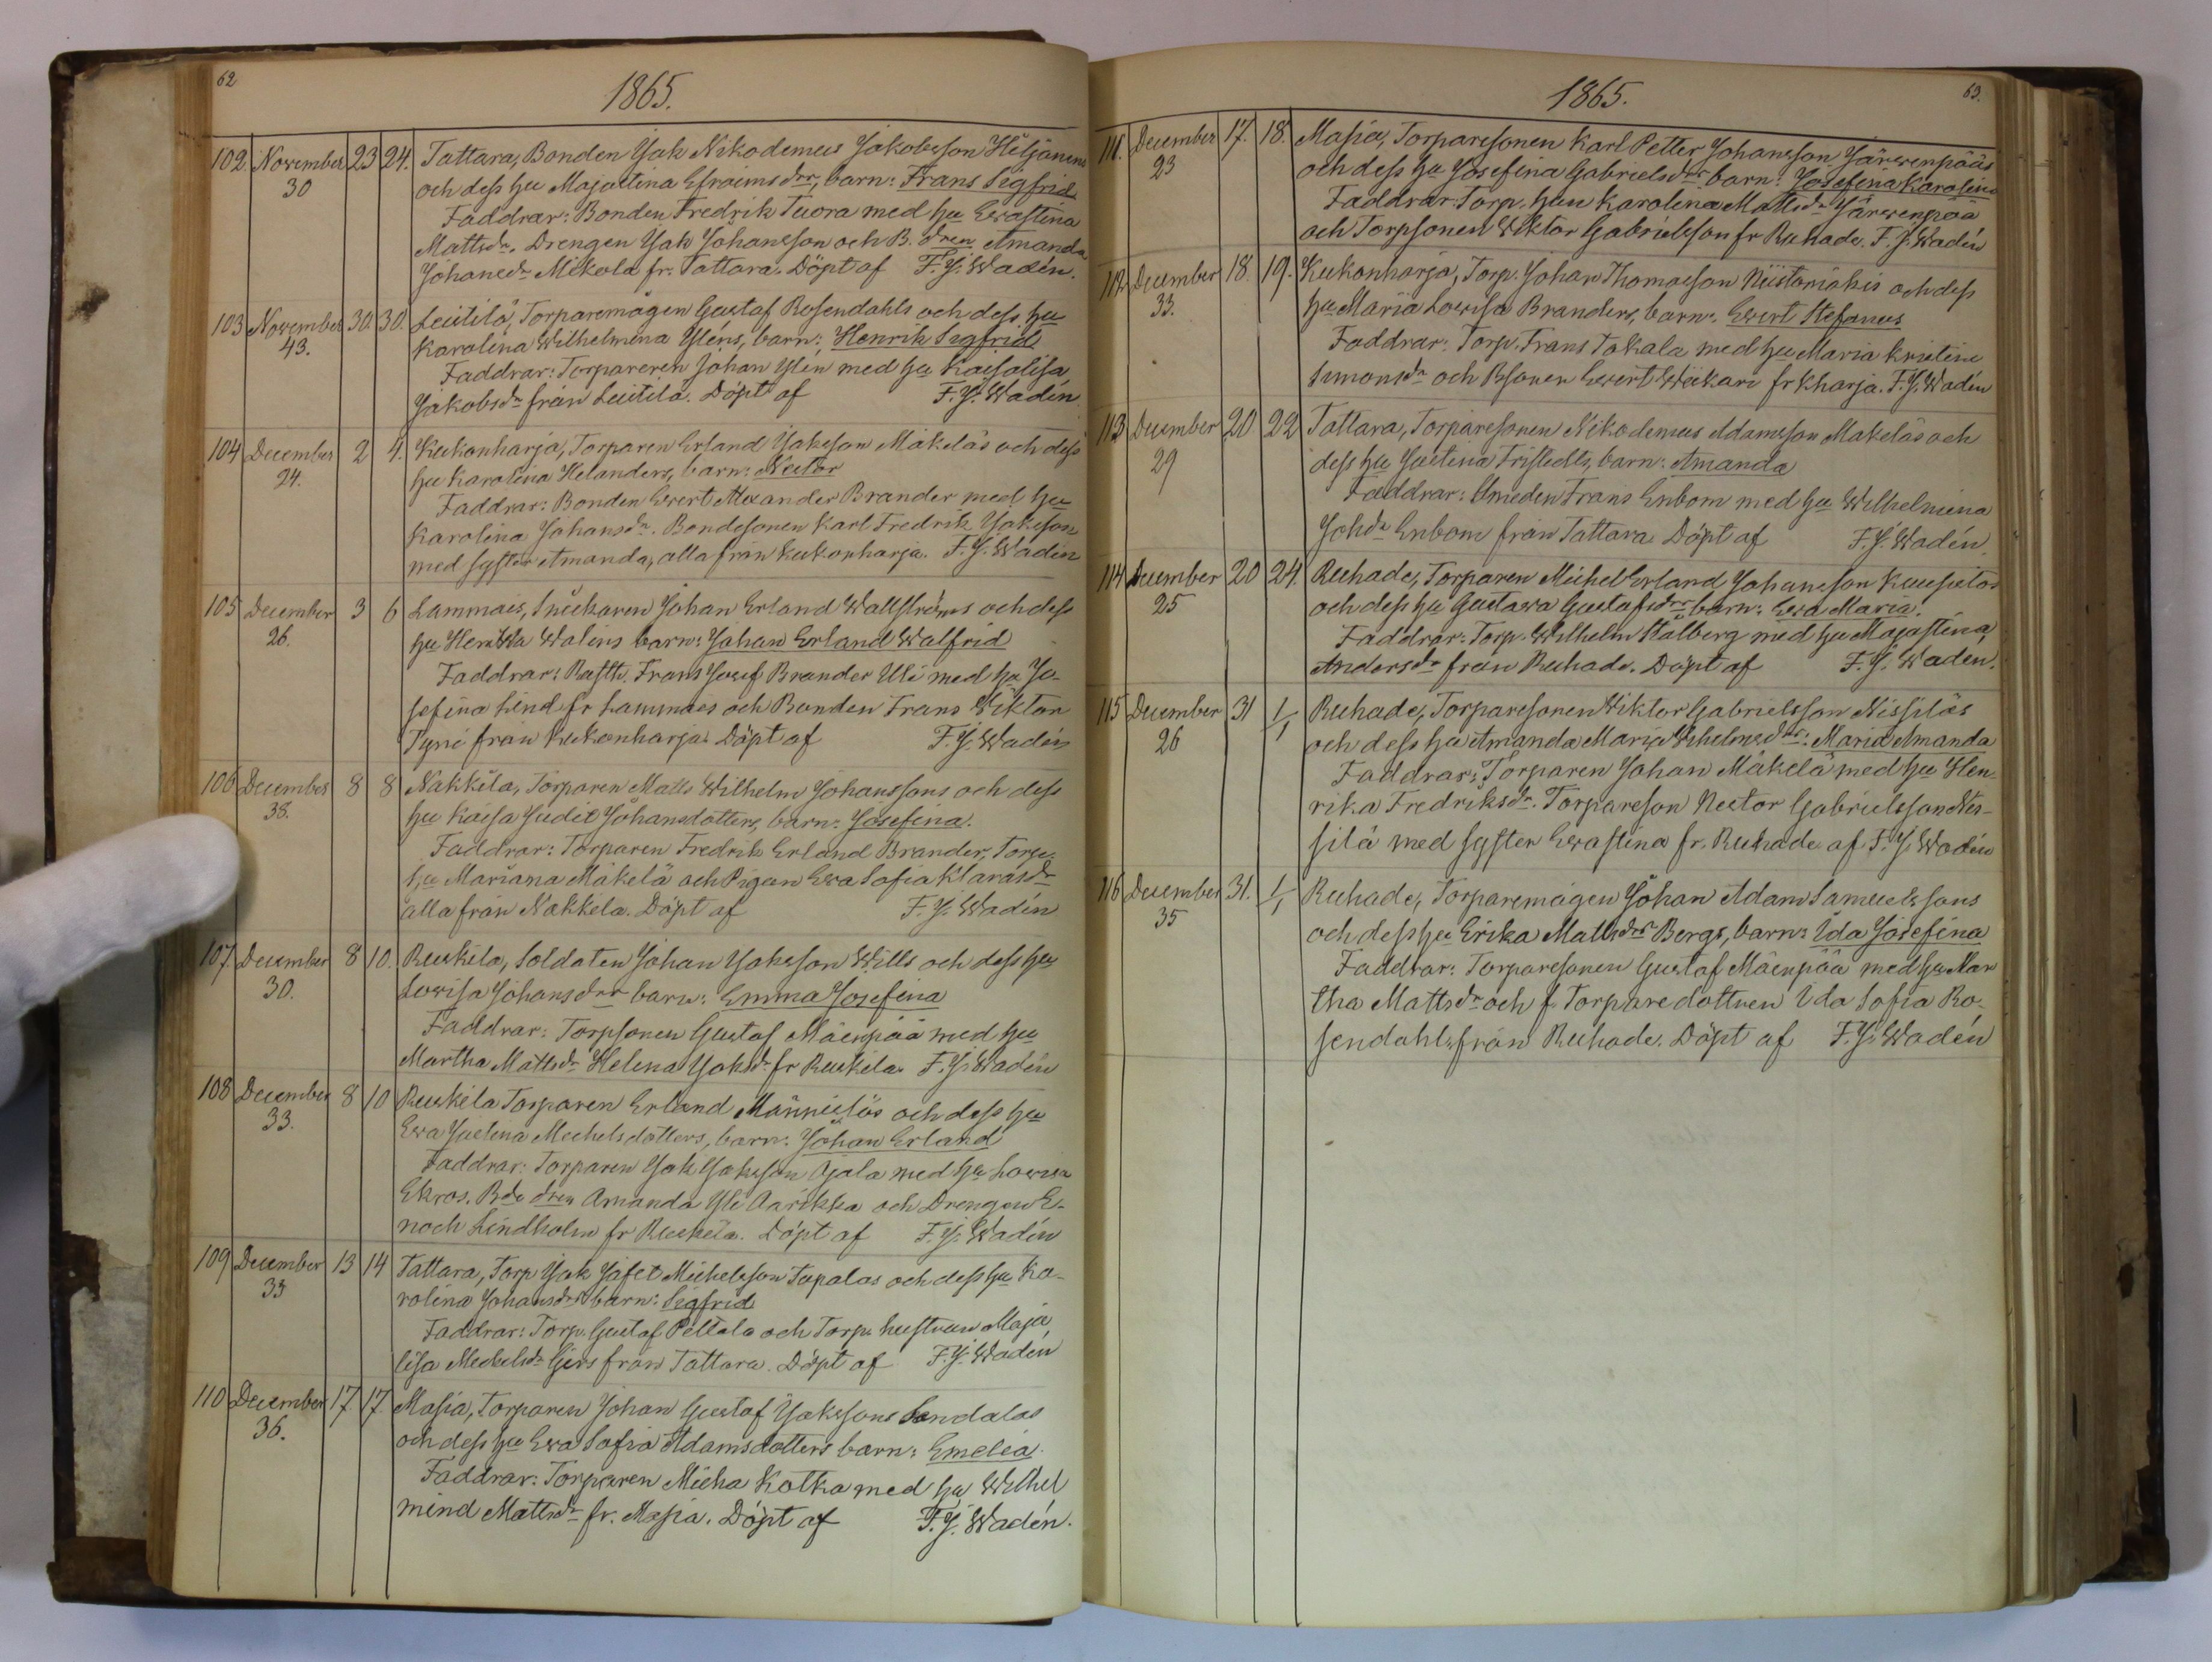 62
1865.
102 November 23 24. Tattara, Bonden Jak Nikodemus Jakobsson Heljanens
30 och dess hu Majastina Efraimsdrs, barn: Frans Sigfrid
Faddrar: Bonden Fredrik Tuora med hu Evastina
Mattsdr. Drengen Jak Johansson och B. dren Amanda
Johansdr Mikola fr. Tattara. Döpt af F. J. Wadén.
103 November 30. 30. Leutilä, Torparemågen Gustaf Rosendahls och dess hu
43. Karolina Wilhelmina Yléns, barn: Henrik Segfrid
Faddrar: Torpareren Johan Ylén med hu Kaisalisa
Jakobsdr från Leutilä. Döpt af F. J. Wadén
104 December 2 4. Kukonharja, Torparen Erland Jaksson Mäkeläs och dess
24. hu Karolina Helanders, barn: Nestor
Faddrar: Bonden Evert Alexander Brander med hu
Karolina Johansdr. Bondesonen Karl Fredrik Jaksson
med syster Amanda, alla från Kukonharja. F. J. Wadén
105 December 3 6 Lammais, Snickaren Johan Erland Wallströms och dess
26. hu Walins barn: Johan Erland Walfrid
Faddrar: Rustth. Frans Josef Brander Uli med hu Jo-
sefina Lind fr Lammaes och Bonden Frans Viktor
Tyni från Kukonharja. Döpt af F. J. Wadén
106 December 8 8 Nakkila, Torparen Matts Wilhelm Johanssons och dess
38. hu Kaisa Judit Johansdotters, barn: Josefina.
Faddrar: Torparen Fredrik Erland Brander, Torp.
hu Mariana Mäkelä och Pigan Eva Sofia Klarasdr
alla från Nakkela. Döpt af F. J. Wadén
107 December 8 10. Ruskila, Soldaten Johan Jaksson Wills och dess hu
30. Lovisa Johansdrs barn: Emma Josefina
Faddrar: Torpsonen Gustaf Mäenpää med hu
Martha Mattsdr Helena Johsdr fr Ruskila. F. J. Wadén
108 December 8 10 Ruskila Torparen Erland Männistös och dess hu
33. Eva Justina Michelsdotters, barn: Johan Erland
Faddrar: Torparen Jak Jaksson Ojala med hu Lovisa
Ekros. Bde dren Amanda Yli Aarikka och Drengen E-
noch Lindholm fr Ruskila. Döpt af F. J. Wadén
109 December 13 14 Tattara, Torp Jak Jafet Michelsson Tupalas och dess hu Ka-
33 rolina Johansdrs barn: Sigfrid
Faddrar: Torp. Gustaf Peltala och Torp. hustrun Maja
lisa Mechelsdr från Tattara. Döpt af F. J. Wadén
110 December 17 17. Masia, Torparen Johan Gustaf Jakssons Sandalas
36. och dess hu Eva Sofia Adamsdotters barn: Emelia.
Faddrar: Torparen Micha Kotka med hu Wilhel
mina Mattsdr fr. Masia. Döpt af F. J. Wadén.
63.
1865.
111. December 17. 18. Masia, Torparesonen Karl Petter Johansson Järvenpääs
23 och dess hu Josefina Gabrielsdrs barn: Josefina Karolina
Faddrar: Torp. hun Karolina Mattsdr Järvenpää
och Torpsonen Viktor Gabrielsson fr Ruhade. F. J. Wadén
112 December 18. 19. Kukonharja, Torp. Johan Thomasson Niistomäkis och dess
33. hu Maria Lovisa Branders, barn: Evert Stefanus
Faddrar: Torp. Frans Takala med hu Maria Kristina
Simonsdr och Bsonen Evert Wiikari fr Kharja. F. J. Wadén
113 December 20 22 Tattara, Torparesonen Nikodemus Adamsson Mäkeläs och
29 dess hu Justina Fristedts, barn: Amanda
Faddrar: Smeden Frans Enbom med hu Wilhelmina
Johdr Enbom från Tattara Döpt af F. J. Wadén.
114 December 20 24. Ruhade, Torparen Michel Erland Johansson Kuusistos
25 och dess hu Gustava Gustafsdrs barn: Eva Maria.
Faddrar: Torp. Wilhelm Stålberg med hu Majastina
Andersdr från Ruhade. Döpt af F. J. Wadén.
115 December 31 1/1 Ruhade, Torparesonen Wiktor Gabrielsson Nissiläs
26 och dess hu Amanda Maria Wilhelmsdrs: Maria Amanda
Faddrar: Torparen Johan Mäkelä med hu Hen-
rika Fredriksdr. Torpareson Nestor Gabrielsson Nis-
silä med syster Evastina fr. Ruhade af F. J. Wadén
116 December 31. 1/1 Ruhade, Torparemågen Johan Adam Samuelssons
35 och dess hu Erika Mattsdrs Bergs, barn: Ida Josefina
Faddrar: Torparesonen Gustaf Mäenpää med hu Mar
tha Mattsdr och f. Torparedottren Ida Sofia Ro-
sendahl, från Ruhade. Döpt af F. J. Wadén